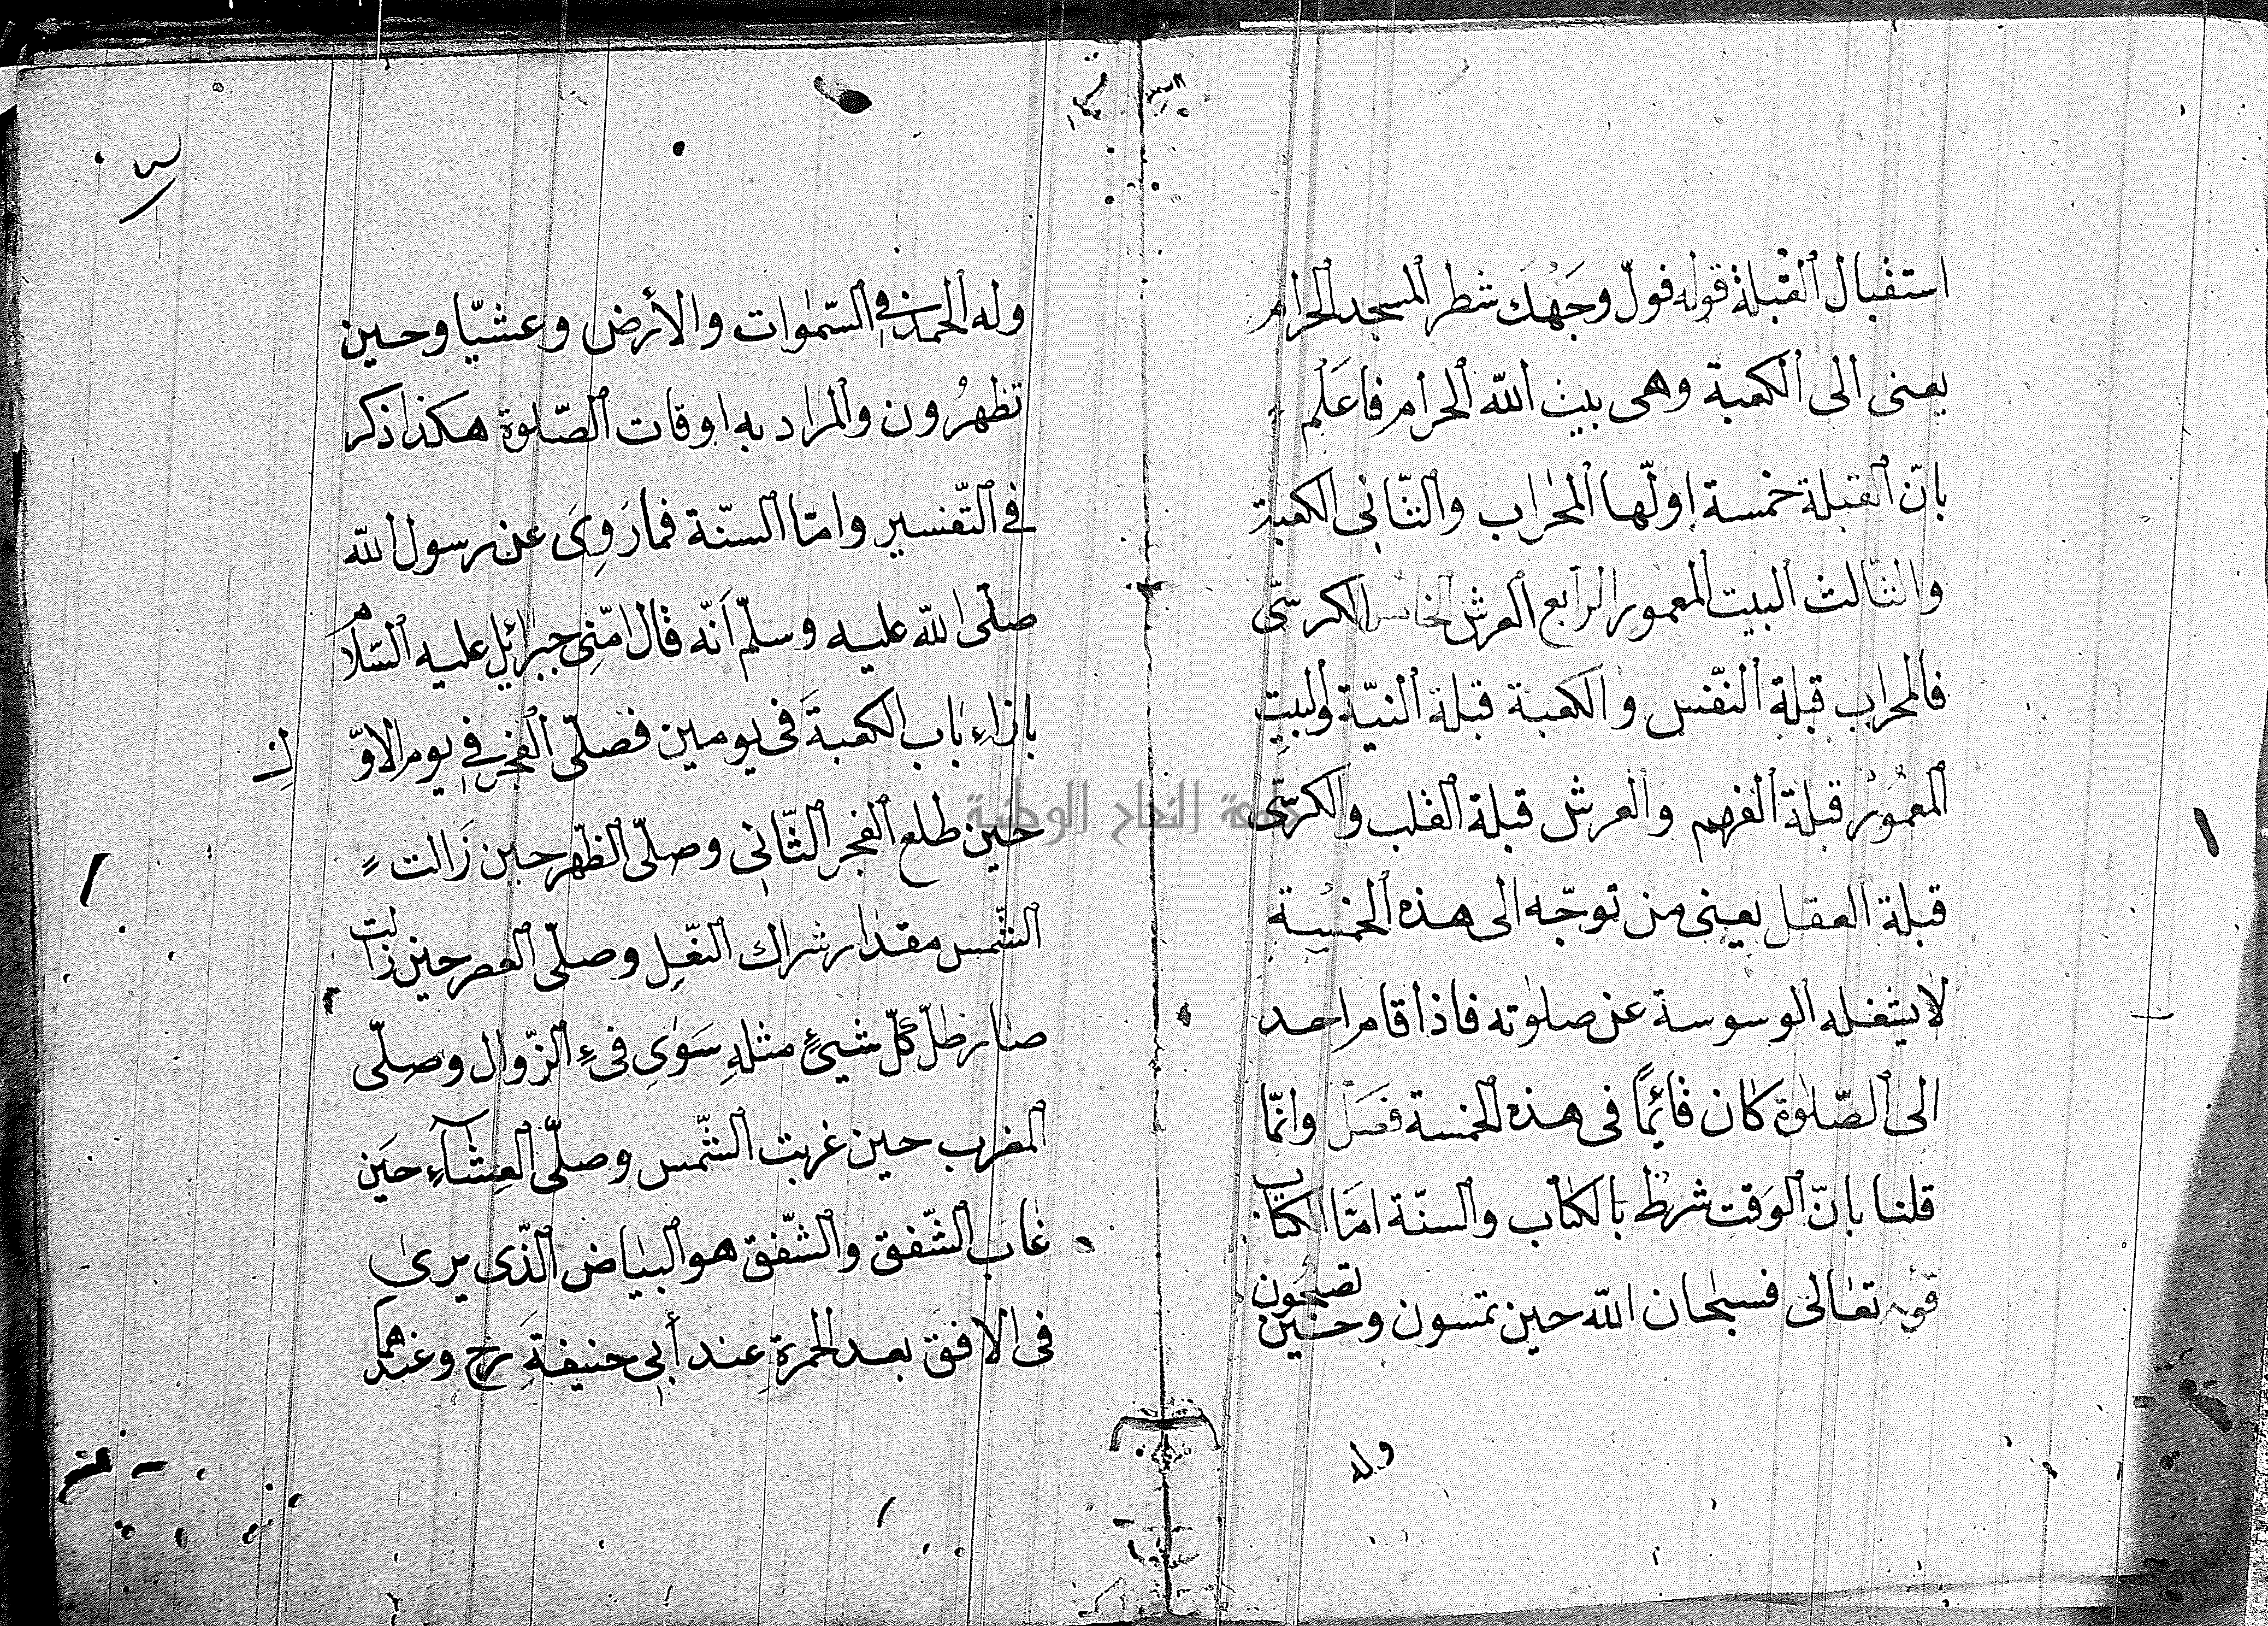 استقبال القبلة قوله فولّ وجهك شطر المسجد الحرام
يعنى الى الكعبة وهى بيت الله الحرام فاعلم
بانّ القبلة خمسة اولّها المحراب والثّانى الكعبة
والثّالث البيت المعمور الرابع العرش الخامس الكرسّى
فالمحراب قبلة النّفس والكعبة قبلة النيّة والبيت
المعمور قبلة الفهم والعرش قبلة القلب والكرسّى
قبلة العقل يعنى من توجّه الى هذه الخمسة
لا يشغله الوسوسة عن صلوته فاذا قام احد
الى الصّلوة كان قائمًا فى هذه الخمسة فصل وانمّا
قلنا بانّ الوقت شرط بالكتاب والسنّة امّا الكتاب
قوله تعالى فسبحان الله حين تمسون وحين تصبحون
وله
وله الحمد فى السّموات والأرض وعشيّا وحين
تظهرون والمراد به اوقات الصّلوة هكذا ذكر
فى التّفسير وامّا السنّة فما رَوِىَ عن رسول الله
صلّى الله عليه وسلّم اَنّه قال امّنِى جبرائيل عليه السّلام
بازاءِ باب الكعبةَ فى يومين فصلّى الفجر فى يوم الاوّ
ل
حين طلع الفجر الثّانى وصلّى الظّهر حين زَالت
الشّمس مقدار شراك النّعلِ وصلّى العصر حين زالت
صار ظلّ كُلّ شيئٍ مثلهِ سَوٰى فىءٍ الزّوال وصلّى
المغرب حين غربت الشّمس وصلّى العِشآءِ حَين
غاب الشّفق والشّفق هو البياض الّذى يرى
فى الافق بعد الحمرةِ عند أبى حنيفةَ رح وعندهما
جامعة النجاح الوطنية